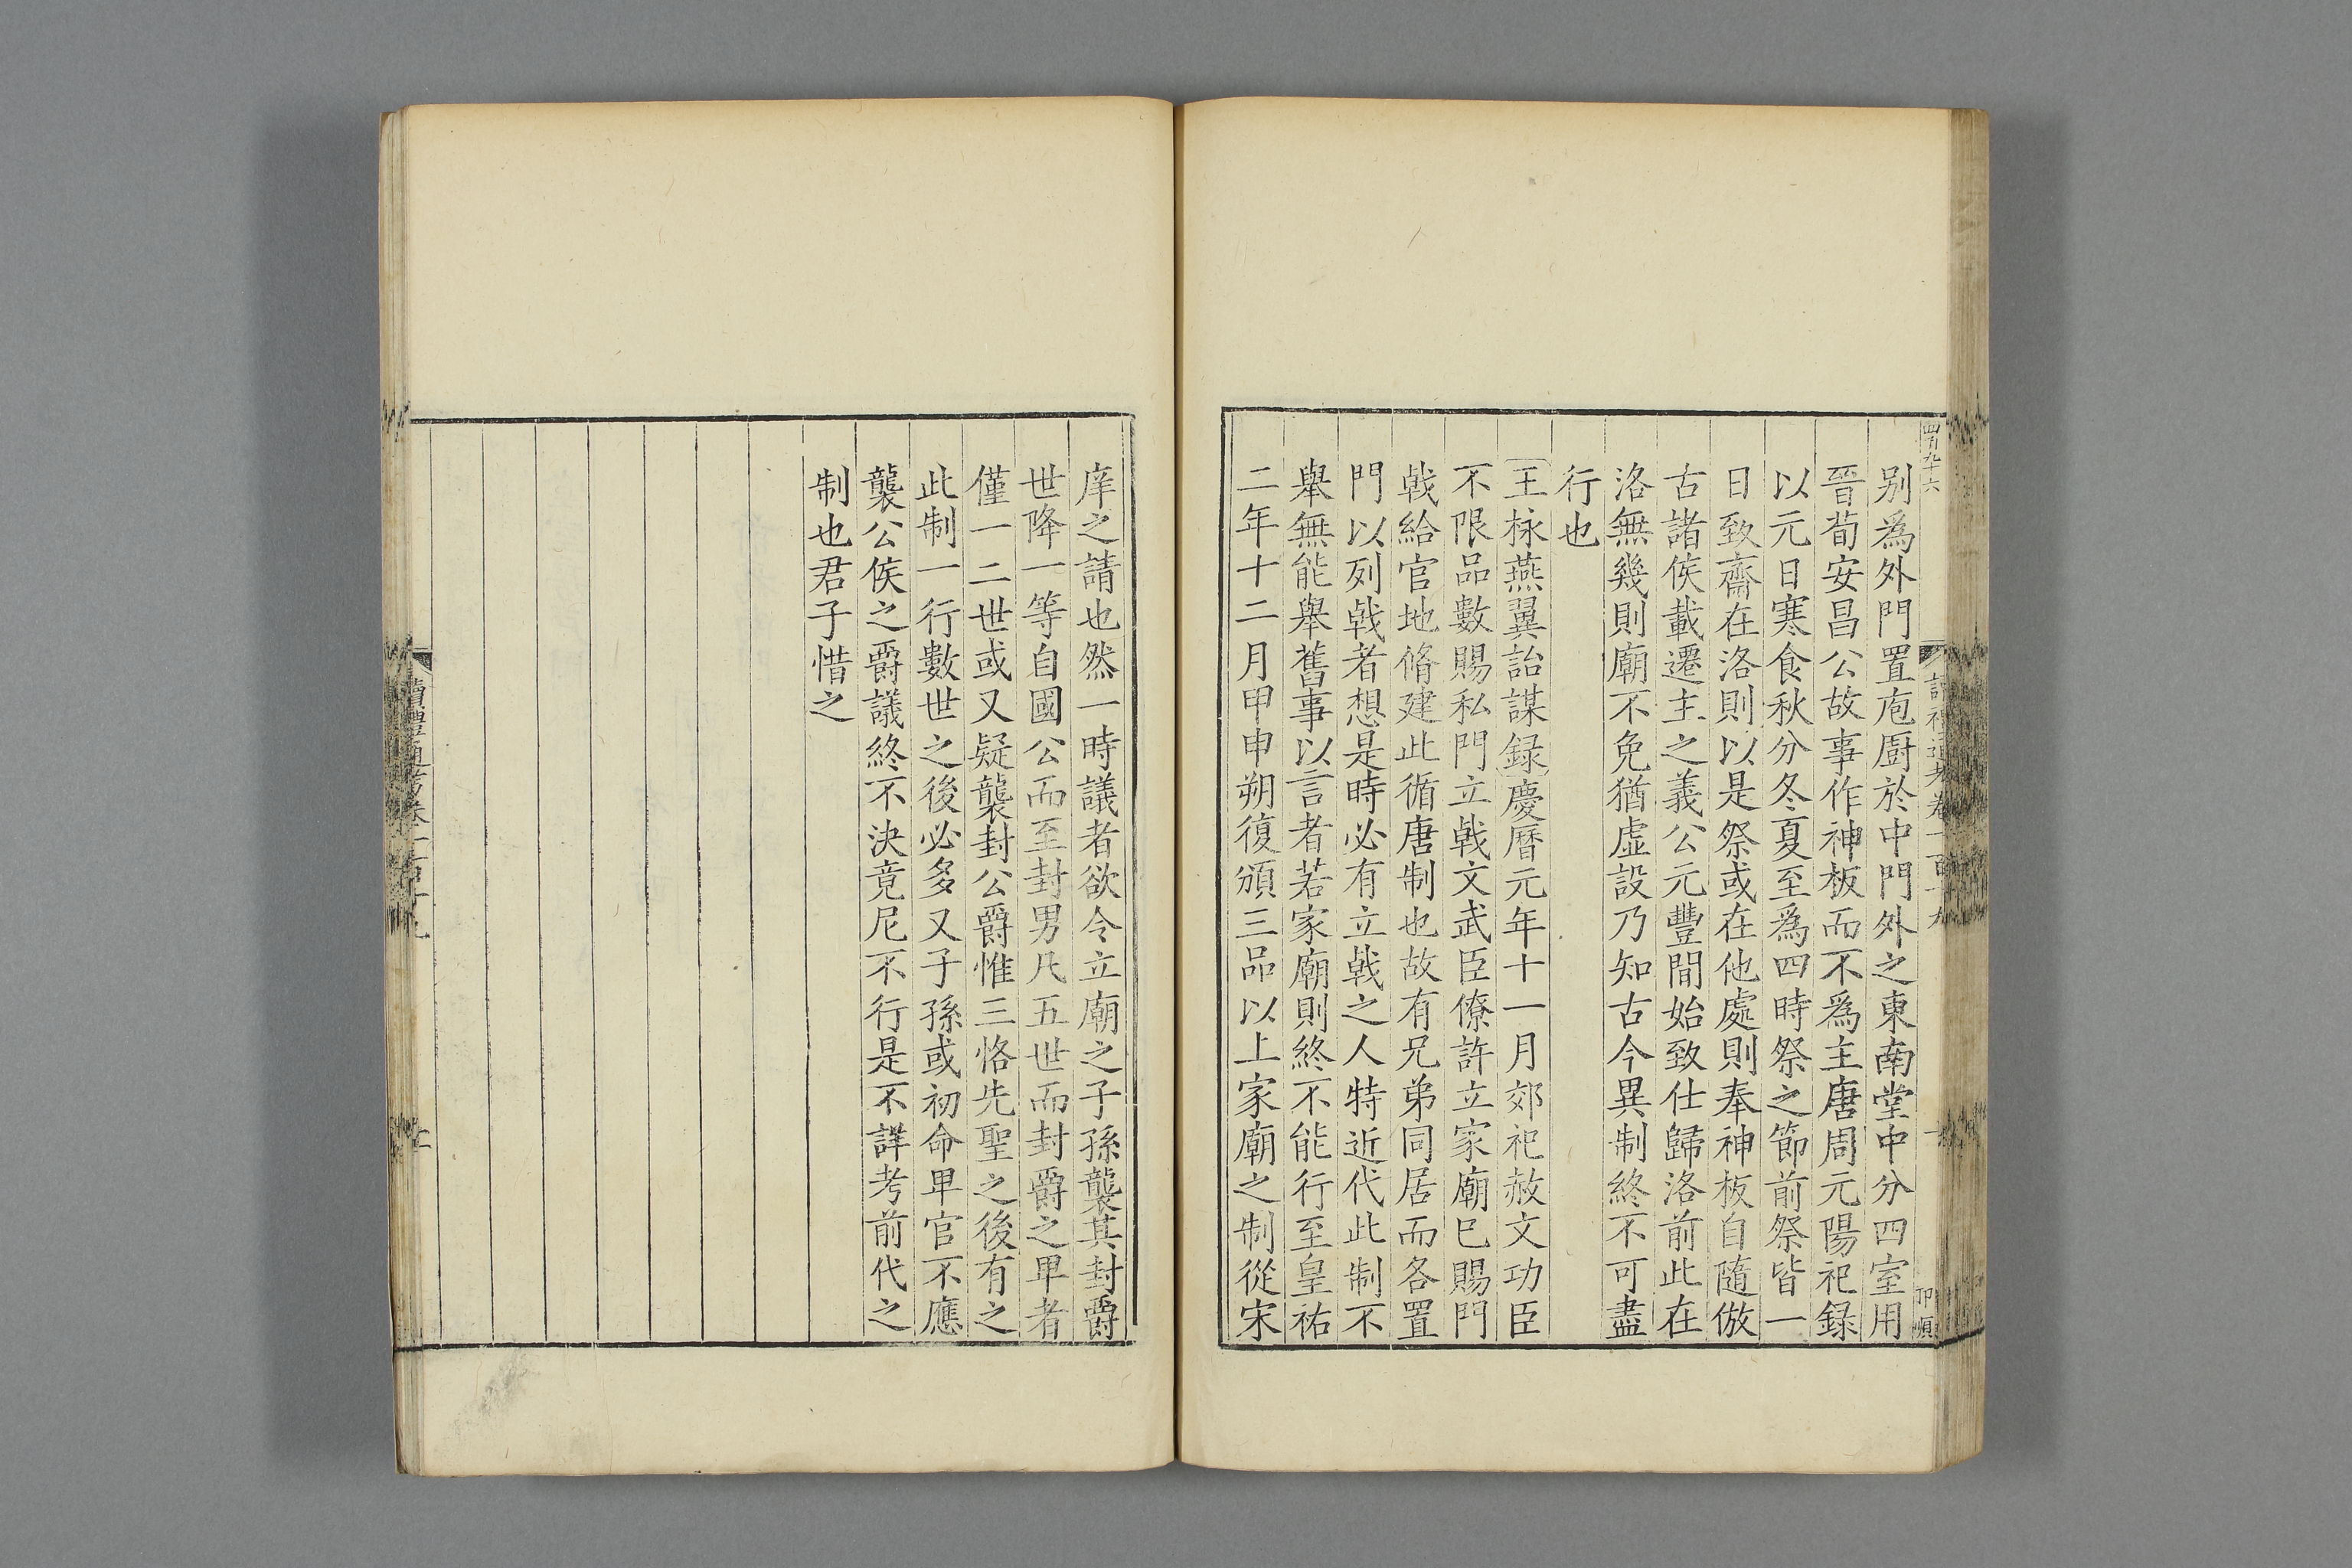 四百九十六
别爲外門置庖廚於中門外之東南堂中分四室用
晉荀安昌公故事作神板而不爲主唐周元陽祀録
以元日寒食秋分冬夏至爲四時祭之節前祭皆一
日致齋在洛則以是祭或在他處則奉神板自隨倣
古諸侯載遷主之義公元豐間始致仕歸洛前此在
洛無幾則廟不免猶虚設乃知古今異制終不可盡
行也
王栐燕翼詒謀録慶曆元年十一月郊祀赦文功臣
不限品數賜私門立戟文武臣僚許立家廟已賜門
戟給官地脩建此循唐制也故有兄弟同居而各置
門以列戟者想是時必有立戟之人特近代此制不
舉無能舉舊事以言者若家廟則終不能行至皇祐
二年十二月甲申朔復頒三品以上家廟之制從宋
庠之請也然一時議者欲令立廟之子孫襲其封爵
世降一等自國公而至封男凡五世而封爵之卑者
僅一二世或又疑襲封公爵惟三恪先聖之後有之
此制一行數世之後必多又子孫或初命卑官不應
襲公侯之爵議終不決竟尼不行是不詳考前代之
制也君子惜之
讀禮通考卷一百十九